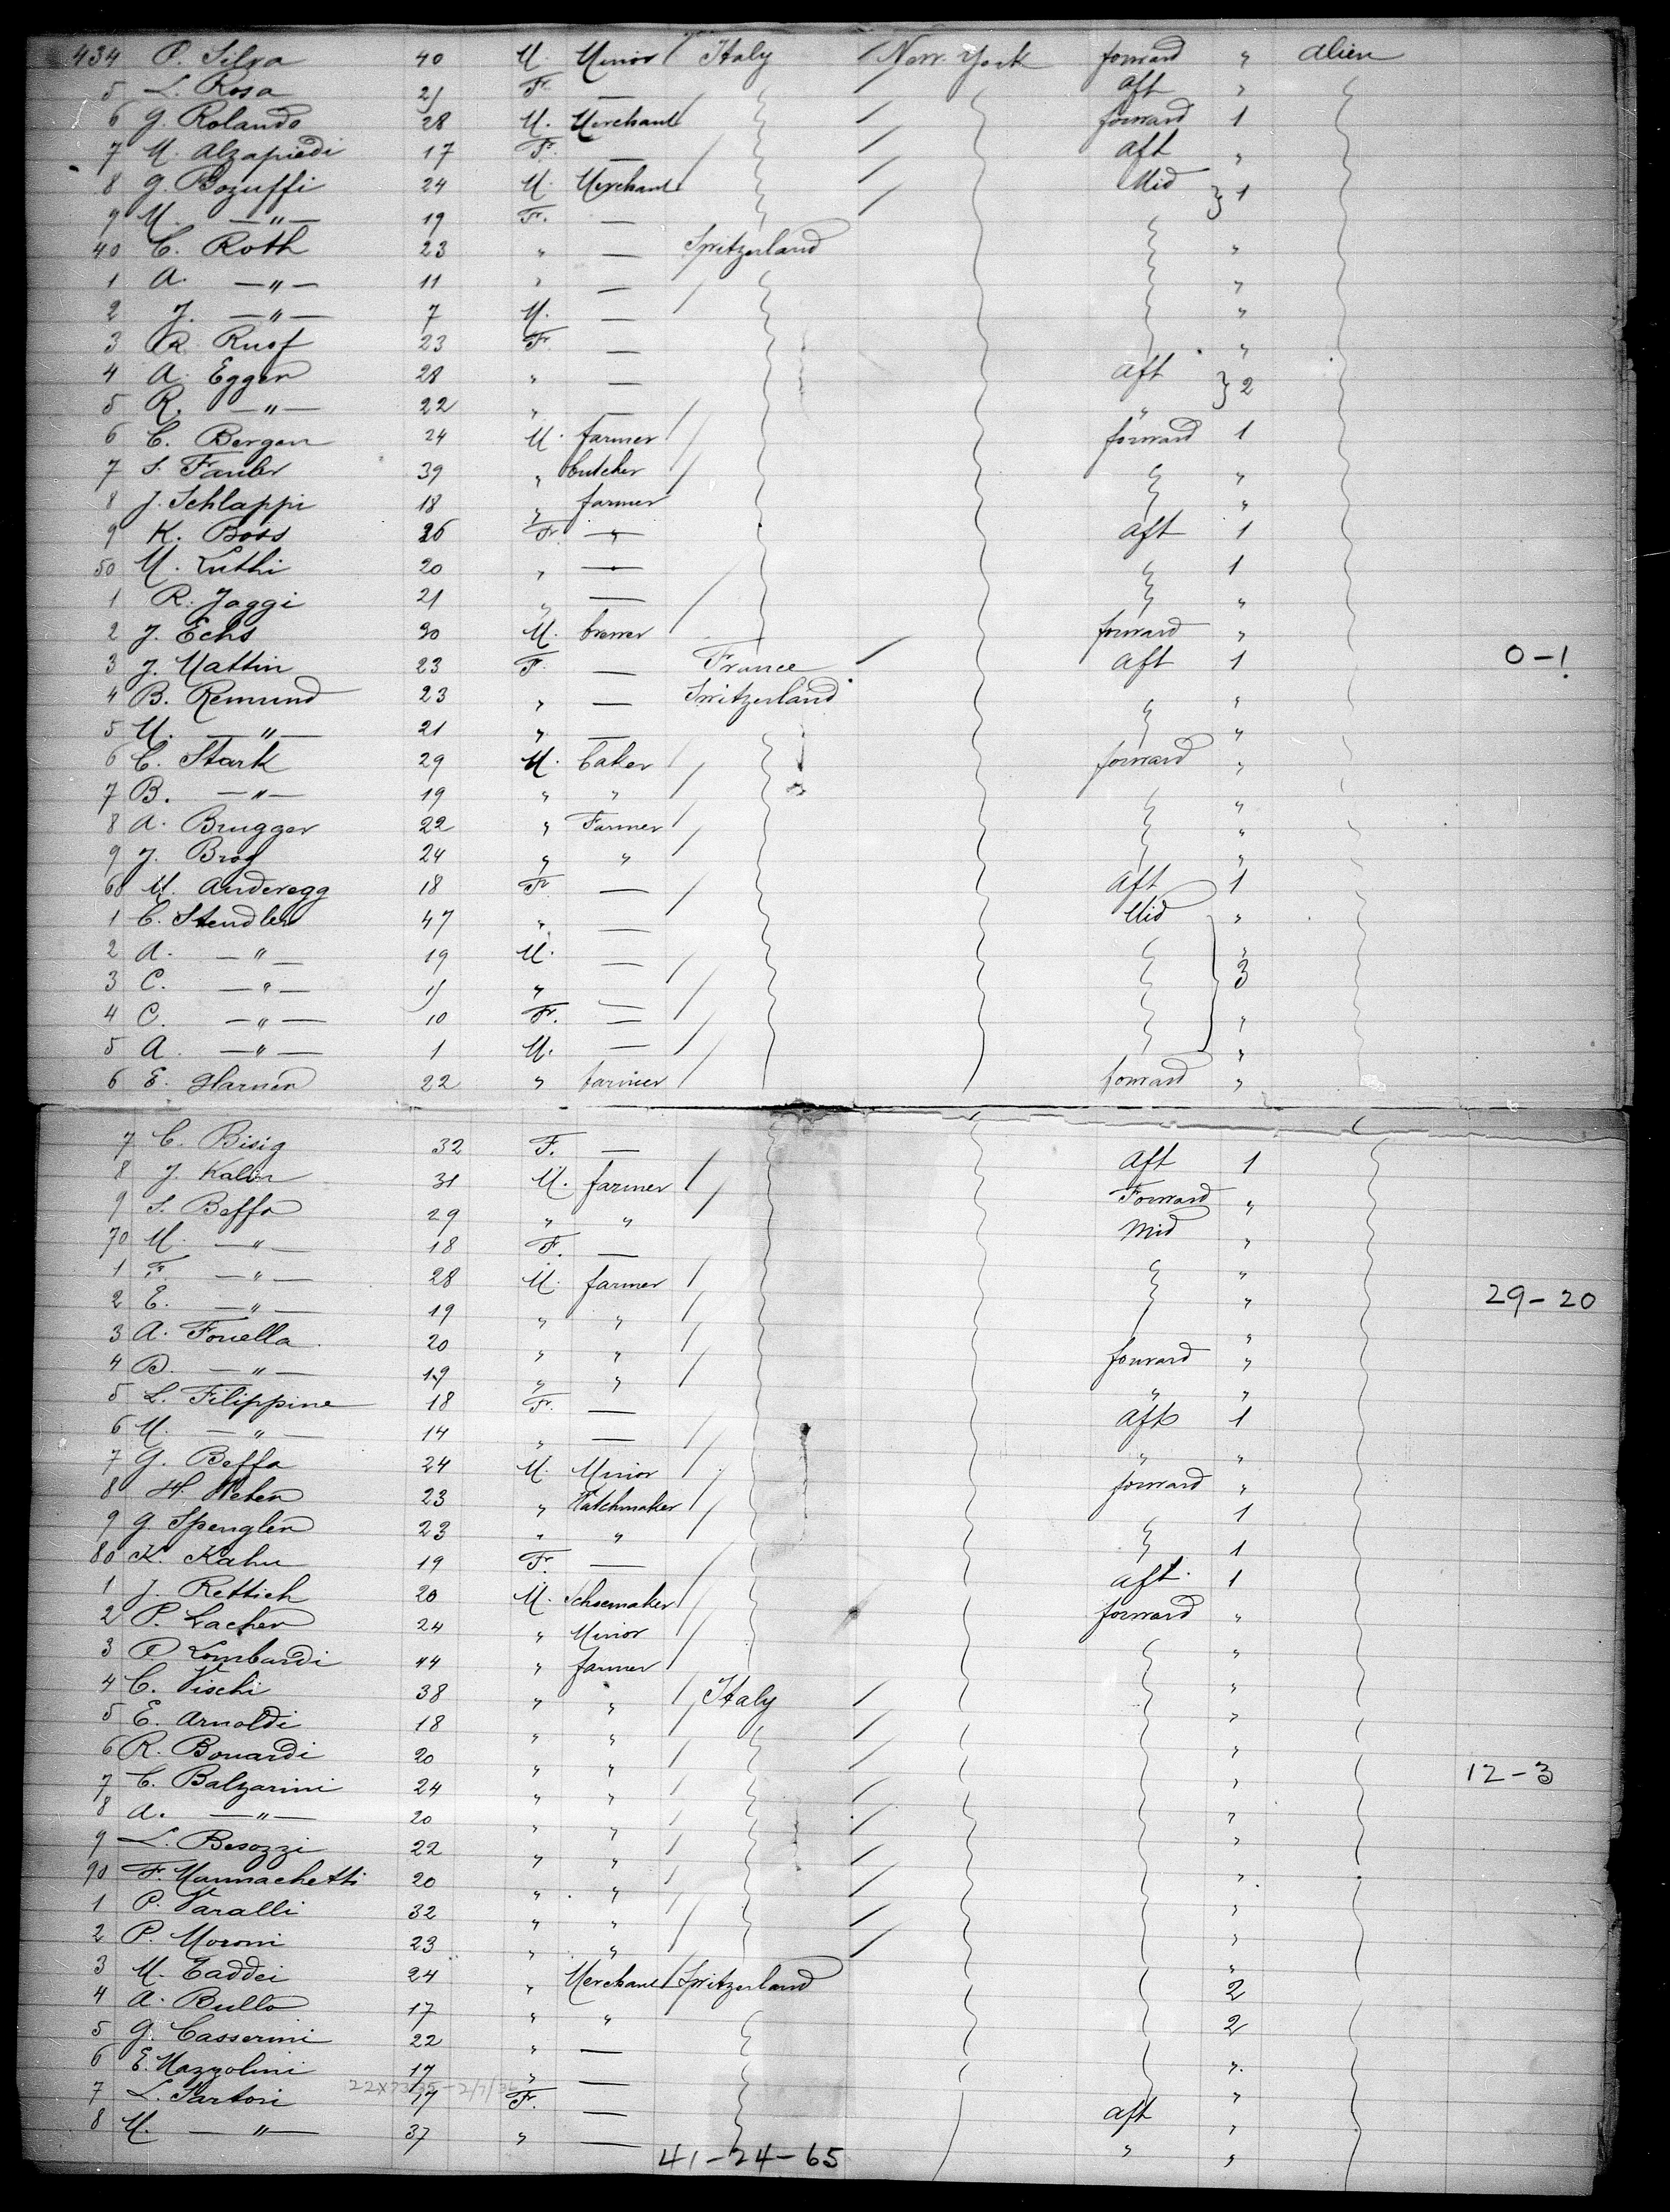 434 P. Silva 40 M. Minor Italy New York forward " Alien
5 L. Rosa 21 F. — aft "
6 G. Rolando 28 M. Merchant forward 1
7 M. Alzapiedi 17 F. — aft "
8 G. Bozuffi 24 M. Merchant Mid } 1
9 M. —"— 19 F. —
40 C. Roth 23 " — Switzerland "
1 A. —"— 11 " — "
2 J. —"— 7 M. — "
3 R. Ruof 23 F. — "
4 A. Egger 28 " — aft } 2
5 R. —"— 22 " — "
6 C. Berger 24 M. farmer forward 1
7 S. Fauler 39 " butcher "
8 J. Schlappi 18 " farmer "
9 K. Boss 26 F. — aft 1
50 M. Luthi 20 " — 1
1 R. Jaggi 21 " — "
2 J. Echs 30 M. brewer forward "
3 J. Mattin 23 F. — France aft 1 0-1
4 B. Remund 23 " — Switzerland "
5 M. —"— 21 " — "
6 C. Stark 29 M. baker forward "
7 B. —"— 19 " " "
8 A. Brugger 22 " Farmer "
9 J. Brog 24 " " "
60 M. Anderegg 18 F. — aft 1
1 C. Stendler 47 " — Mid "
2 A. —"— 19 M. — "
3 C. —"— 11 " — 3
4 C. —"— 10 F. — "
5 A. —"— 1 M. — "
6 E. Glarner 22 " farmer forward "
7 C. Bisig 32 F. — aft 1
8 J. Kalin 31 M. farmer Forward "
9 S. Beffa 29 " " Mid "
70 M. —"— 18 F. — "
1 F. —"— 28 M. farmer "
2 E. —"— 19 " " " 29-20
3 A. Fonella 20 " " forward "
4 B. —"— 19 " " " "
5 L. Filippine 18 F. — aft 1
6 M. —"— 14 " — " "
7 G. Beffa 24 M. Minor forward "
8 H. Weber 23 " Watchmaker 1
9 G. Spengler 23 " " 1
80 K. Kahn 19 F. — aft 1
1 J. Rettich 20 M. Schoemaker forward "
2 P. Lacher 24 " Minor "
3 P. Lombardi 44 " farmer "
4 C. Vischi 38 " " Italy "
5 E. Arnoldi 18 " " "
6 R. Bonardi 20 " " "
7 C. Balzarini 24 " " " 12-3
8 A. —"— 20 " " "
9 L. Besozzi 22 " " "
90 F. Mannachetti 20 " " "
1 P. Varalli 32 " " "
2 P. Moroni 23 " " "
3 M. Taddei 24 " Merchant Switzerland 2
4 A. Bullo 17 " " 2
5 G. Casserini 22 " — "
6 E. Mazzolini 17 " — "
7 L. Sartori 17 F. — aft "
8 M. —"— 37 " — " "
41-24-65